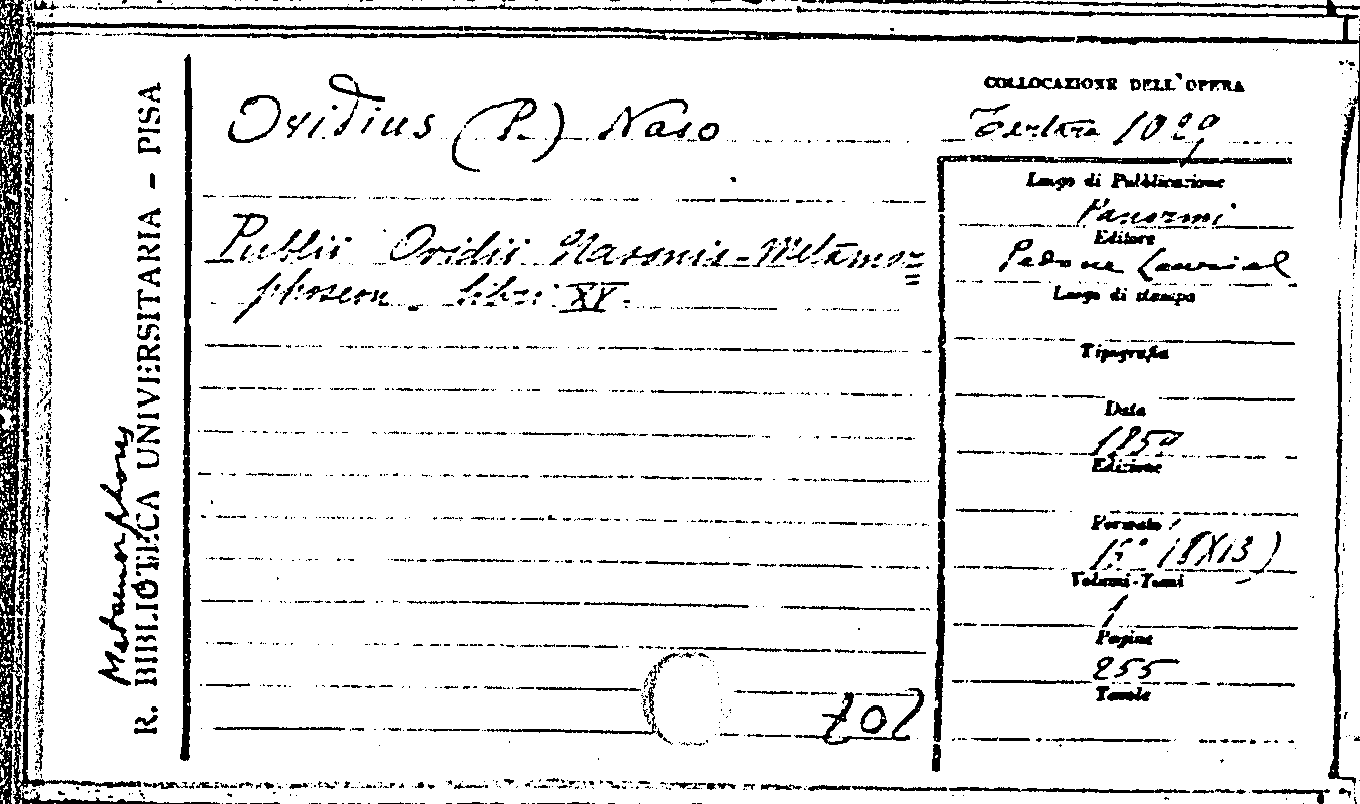 Metamorphoses
R. BIBLIOTECA UNIVERSITARIA – PISA
Ovidius (P.) Naso
Publii Ovidii Nasonis - Metamor=
phoseon - libri XV.
COLLOCAZIONE DELL'OPERA
1029
Luogo di Pubblicazione
Panormi
Editore
Pedone Lauriel
Luogo di stampa
Tipografia
Data
1850
Edizione
Formato
16° (18X13)
Volumi-Tomi
1
Pagine
255
Tavole